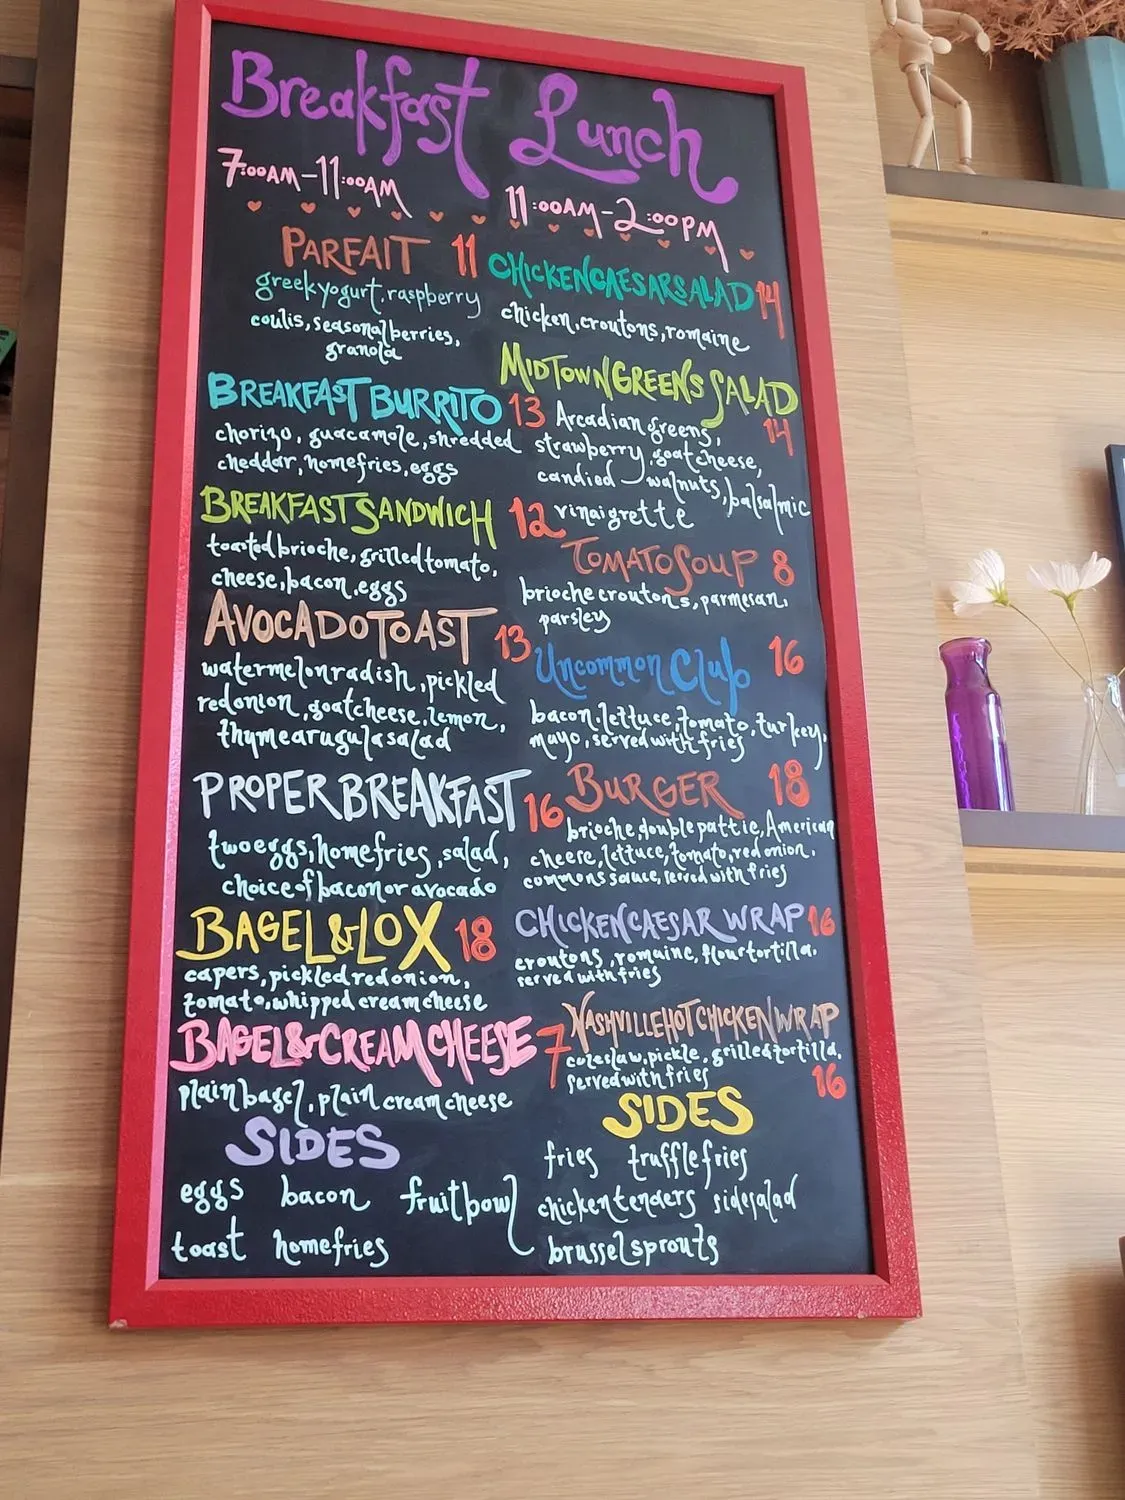 Breakfast
7:00AM-11:00AM
PARFAIT 11
greek yogurt, raspberry
coulis, seasonal berries,
granola
BREAKFAST BURRITO 13
chorizo, guacamole, shredded
cheddar, homefries, eggs
BREAKFAST SANDWICH 12
toasted brioche, grilled tomato,
cheese, bacon, eggs
AVOCADO TOAST 13
watermelon radish, pickled
red onion, goat cheese, lemon,
thyme arugula salad
PROPER BREAKFAST 16
two eggs, homefries, salad,
choice of bacon or avocado
BAGEL & LOX 18
capers, pickled red onion,
tomato, whipped cream cheese
BAGEL & CREAM CHEESE 7
plain bagel, plain cream cheese
SIDES
eggs bacon fruit bowl
toast homefries
Lunch
11:00AM-2:00PM
CHICKEN CAESAR SALAD 14
chicken, croutons, romaine
MIDTOWN GREENS SALAD
14
Arcadian greens,
strawberry, goat cheese,
candied walnuts, balsalmic
vinaigrette
TOMATO SOUP 8
brioche croutons, parmesan,
parsley
Uncommon Club 16
bacon, lettuce, tomato, turkey,
mayo, served with fries
BURGER 18
brioche, double pattie, American
cheese, lettuce, tomato, red onion,
commons sauce, served with fries
CHICKEN CAESAR WRAP 16
croutons, romaine, flour tortilla,
served with fries
NASHVILLE HOT CHICKEN WRAP
coleslaw, pickle, grilled tortilla,
served with fries 16
SIDES
fries truffle fries
chicken tenders side salad
brussel sprouts